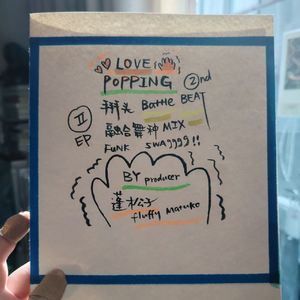 LOVE
POPPING 2nd
辩头 Battle BEAT
II 融合舞种 MIX
EP FUNK SWAgggg!!
BY producer
蓬松子
fluffy Matuko